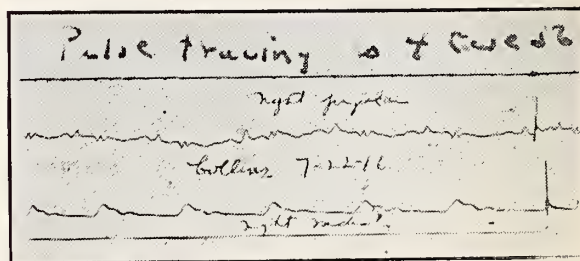 Pulse tracing
right jugular
Collins 7-22-16
right radial